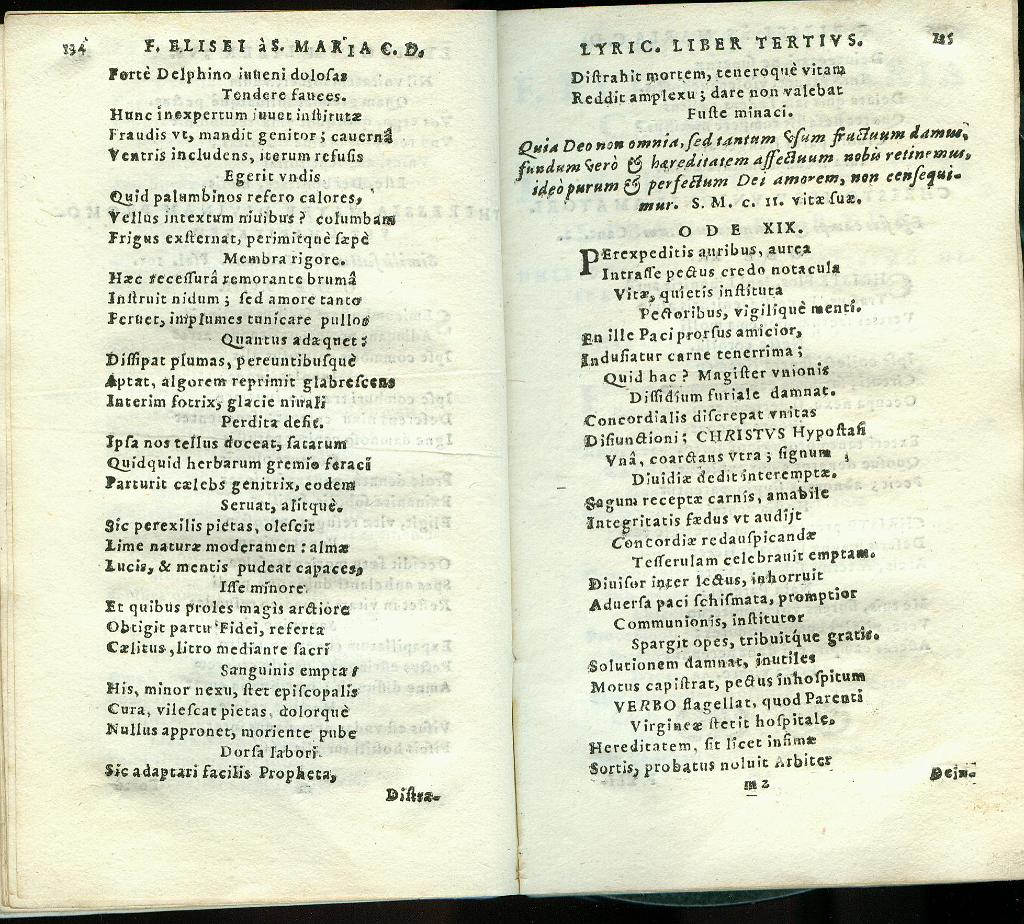 134 F. ELISEI à S. MARIA C. D.
Fortè Delphino iuueni dolosas
Tondere fauces.
Hunc inexpertum iuuet institutæ
Fraudis vt, mandit genitor; cauernâ
Ventris includens, iterum refusis
Egerit vndis
Quid palumbinos refero calores,
Vellus intextum niuibus? columbam
Frigus exsternat, perimitquè sæpè
Membra rigore.
Hæc recessurâ remorante brumâ
Instruit nidum; sed amore tanto
Feruet, implumes tunicare pullos
Quantus adæquet:
Dissipat plumas, pereuntibusquè
Aptat, algorem reprimit glabrescens
Interim fotrix, glacie niuali
Perdita desit.
Ipsa nos tellus doceat, satarum
Quidquid herbarum gremio feraci
Parturit cælebs genitrix, eodem
Seruat, alitquè.
Sic perexilis pietas, olescit
Lime naturæ moderamen: almæ
Lucis, & mentis pudeat capaces,
Isse minore.
Et quibus proles magis arctiore
Obtigit partu Fidei, referta
Cælitus, litro mediante sacri
Sanguinis empta:
His, minor nexu, stet episcopalis
Cura, vilescat pietas, dolorquè
Nullus appronet, moriente pube
Dorsa labori.
Sic adaptari facilis Propheta,
Distra-
LYRIC. LIBER TERTIVS. 135
Distrahit mortem, teneroquè vitam
Reddit amplexu; dare non valebat
Fuste minaci.
Quia Deo non omnia, sed tantum vsum fructuum damus,
fundum verò & hæreditatem affectuum nobis retinemus,
ideò purum & perfectum Dei amorem, non consequi-
mur. S. M. c. 11. vitæ suæ.
ODE XIX.
PErexpeditis auribus, aurea
Intrasse pectus credo notacula
Vitæ, quietis instituta
Pectoribus, vigiliquè menti.
En ille Paci prorsus amicior,
Indusiatur carne tenerrima;
Quid hac? Magister vnionis
Dissidium furiale damnat.
Concordialis discrepat vnitas
Disiunctioni; CHRISTVS Hypostasi
Vnâ, coarctans vtra; signum
Diuidiæ dedit interemptæ.
Sagum receptæ carnis, amabile
Integritatis fædus vt audijt
Concordiæ redauspicandæ
Tesserulam celebrauit emptam.
Diuisor inter lectus, inhorruit
Aduersa paci schismata, promptior
Communionis, institutor
Spargit opes, tribuitque gratis.
Solutionem damnat, inutiles
Motus capistrat, pectus inhospitum
VERBO flagellat, quod Parenti
Virgineæ stetit hospitale.
Hereditatem, sit licet infimæ
Sortis, probatus noluit Arbiter
m 2 Dein-